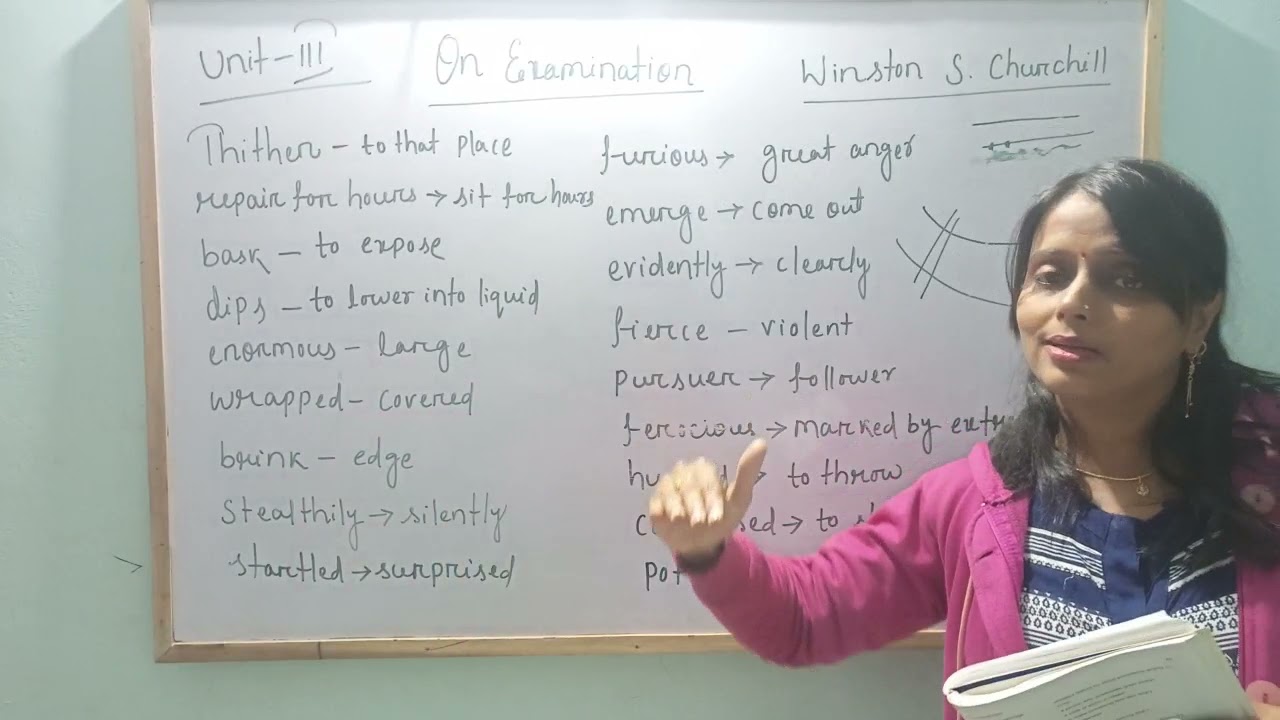 Unit-III On Examination Winston S. Churchill
Thither - to that place
repair for hours → sit for hours
bask - to expose
dips - to lower into liquid
enormous - large
wrapped - covered
brink - edge
Stealthily → silently
startled → surprised
furious → great anger
emerge → come out
evidently → clearly
fierce - violent
pursuer → follower
ferocious → marked by
→ to throw
→ to